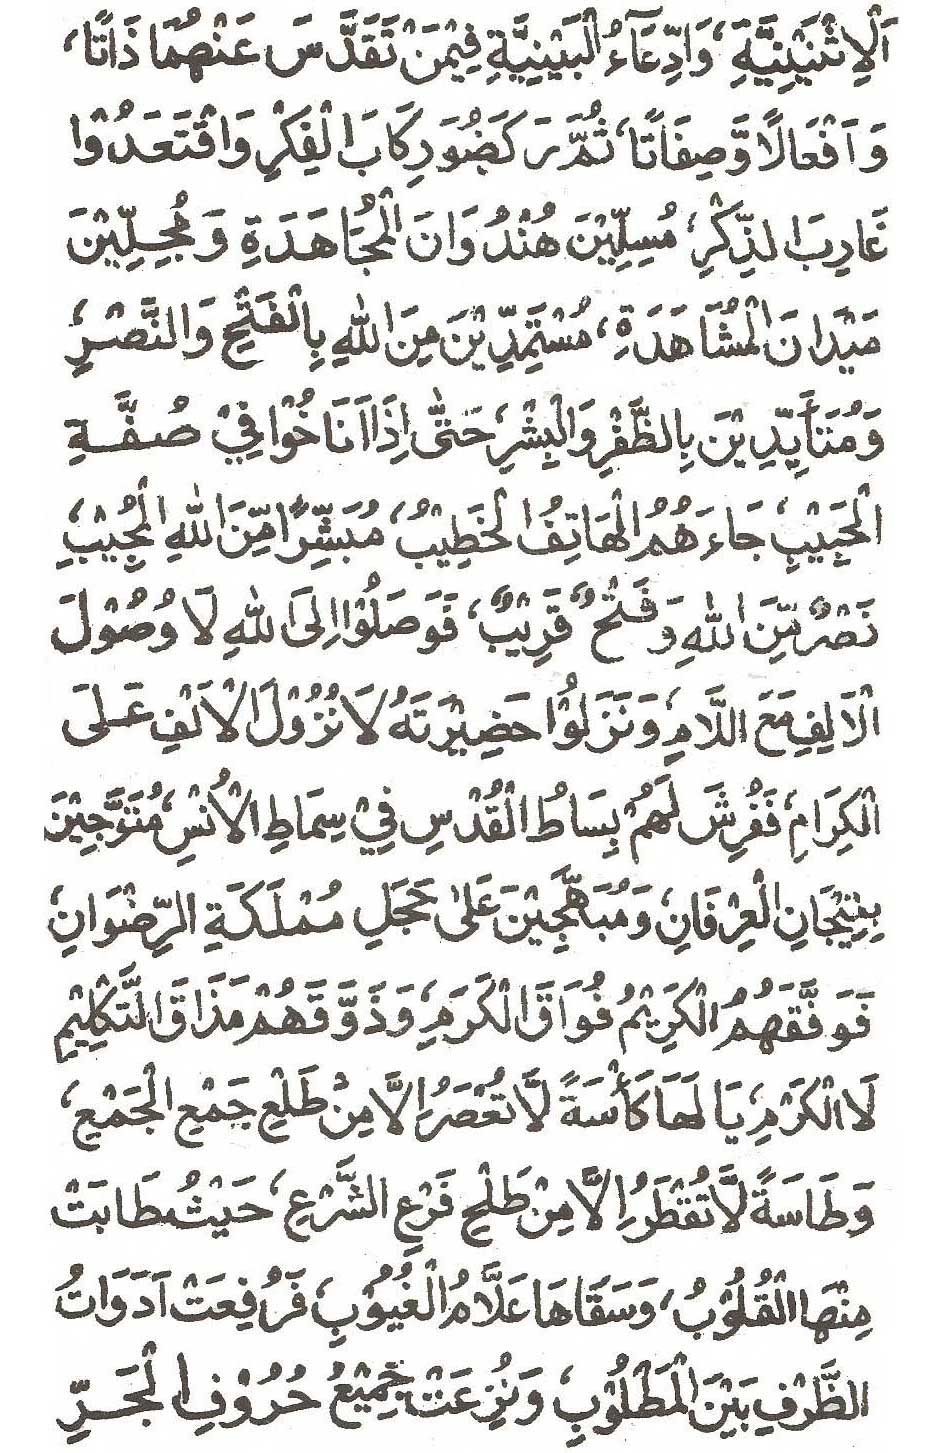 اَلْاِثْنَيْنِيَّةِ، وَادِّعَآءُ الْبَيْنِيَّةِ فِيْمَنْ تَقَدَّسَ عَنْهُمَا ذَاتًا،
وَاَفْعَالًا وَّصِفَاتًا، ثُمَّ رَكَضُوْ رِكَابَ الْفِكْرِ وَاقْتَعَدُوْا
غَارِبَ الذِّكْرِ، مُسِلِّيْنَ هُنْدُوَانَ الْمُجَاهَدَةِ وَمُجِلِّيْنَ
مَيْدَانَ الْمُشَاهَدَةِ، مُسْتَمِدِّيْنَ مِنَ اللهِ بِالْفَتْحِ وَالنَّصْرِ،
وَمُتَأَيِّدِيْنَ بِالظَّفْرِ وَالْبِشْرِ، حَتّٰى اِذَا اَنَاخُوْا فِيْ صُفَّةِ
الْحَبِيْبِ، جَاءَهُمُ الْهَاتِفُ الْخَطِيْبُ، مُبَشِّرًا مِّنَ اللهِ الْمُجِيْبِ،
نَصْرٌ مِّنَ اللهِ وَفَتْحٌ قَرِيْبٌ، فَوَصَلُوْا اِلَى اللهِ لَا وُصُوْلَ
الْاَلِفِ مَعَ اللَّامِ، وَنَزَلُوْا حَضِيْرَتَهُ لَا نُزُوْلَ الْاَنْفِ عَلَى
الْكِرَامِ، فَفُرِشَ لَهُمْ بِسَاطُ الْقُدْسِ فِيْ سِمَاطِ الْاُنْسِ، مُتَوَّجِيْنَ
بِتِيْجَانِ الْعِرْفَانِ، وَمُبَهَّجِيْنَ عَلٰى حَجَلِ مَمْلَكَةِ الرِّضْوَانِ،
فَوَفَّقَهُمُ الْكَرِيْمُ فُوَاقَ الْكَرَمِ، وَذَوَّقَهُمْ مَذَاقَ التَّكْلِيْمِ
لَا الْكَرْمِ، يَا لَهَا كَأْسَةً لَّا تُعْصَرُ اِلَّا مِنْ طَلْعِ جَمْعِ الْجَمْعِ،
وَطَاسَةً لَّا تُقْطَرُ اِلَّا مِنْ طَلْحِ فَرْعِ الشَّرْعِ، حَيْثُ طَابَتْ
مِنْهَا الْقُلُوْبُ، وَسَقَاهَا عَلَّامُ الْغُيُوْبِ، فَرُفِعَتْ اَدَوَاتُ
الظَّرْفِ بَيْنَ الْمَطْلُوْبِ، وَنُزِعَتْ جَمِيْعُ حُرُوْفِ الْجَرِّ